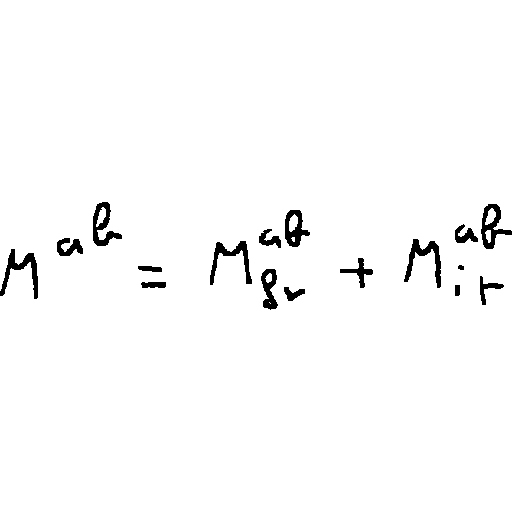 M^{ab} = M^{ab}_{gr} + M^{ab}_{ir}